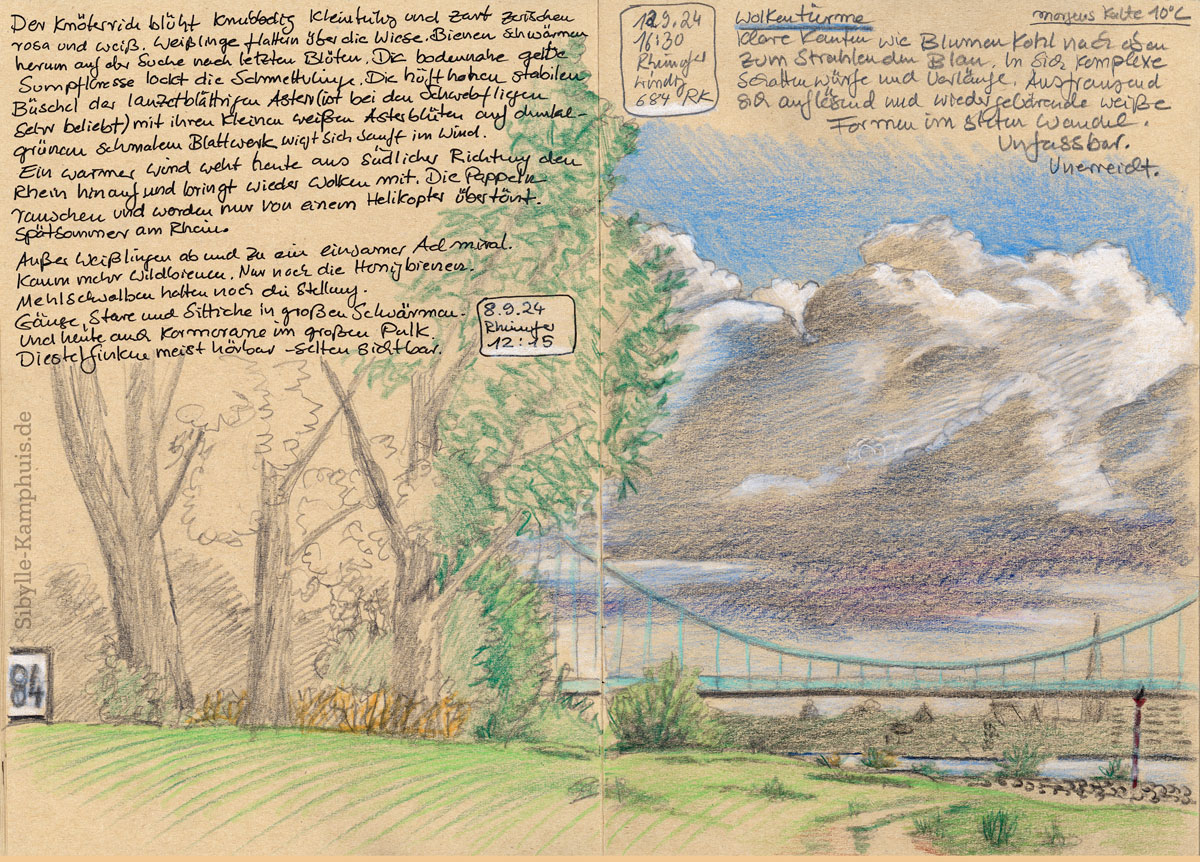 Der Knöterich blüht knubbelig kleinteilig und zart zwischen
rosa und weiß. Weißlinge flattern über die Wiese. Bienen schwärmen
herum auf der Suche nach letzten Blüten. Die bodennahe gelbe
Sumpfkresse lockt die Schmetterlinge. Die hüfthohen stabilen
Büschel der lanzettblättrigen Astern (ist bei den Schwebfliegen
sehr beliebt) mit ihren kleinen weißen Asterblüten auf dunkel-
grünem schmalem Blattwerk wiegt sich sanft im Wind.
Ein warmer Wind weht heute aus südlicher Richtung den
Rhein hinauf und bringt wieder Wolken mit. Die Pappeln
rauschen und werden nur von einem Helikopter übertönt.
Spätsommer am Rhein.
Außer Weißlingen ab und zu ein einsamer Admiral.
Kaum mehr Wildbienen. Nur noch die Honigbienen.
Mehlschwalben halten noch die Stellung.
Gänse, Stare und Sittiche in großen Schwärmen.
Und heute auch Kormorane im großen Pulk.
Diestelfinken meist hörbar - selten sichtbar.
8.9.24
Rheinufer
12:15
84
Sibylle-Kamphuis.de
12.9.24
16:30
Rheinufer
windig
684 RK
Wolkentürme
morgens Kälte 10°C
Klare Kanten wie Blumenkohl nach oben
zum strahlenden Blau. In sich komplexe
Schattenwürfe und Verläufe. Ausfransend
sich auflösend und wiedergebärende weiße
Formen im steten Wandel.
Unfassbar.
Unerreicht.